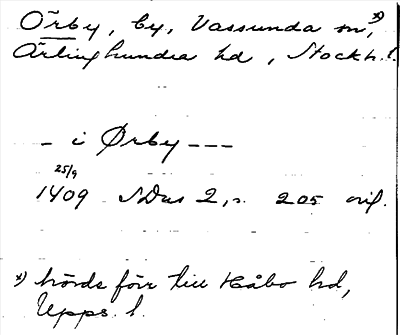 Örby, by, Vassunda sn,x)
Ärlinghundra hd, Stockh. l.
– i Ørby ---
25/9
1409 SDns 2, s. 205 orig.
x) hörde förr till Håbo hd,
Upps. l.